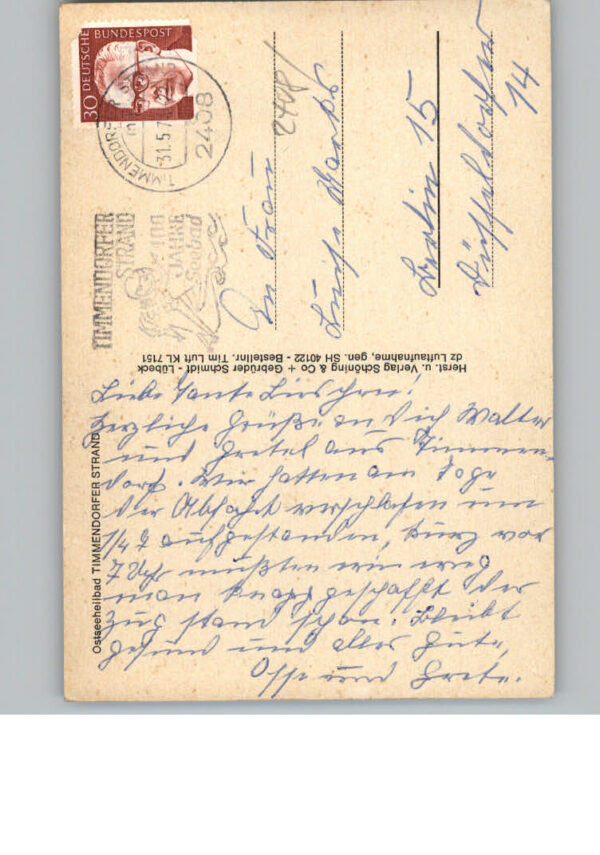 30 DEUTSCHE BUNDESPOST
TIMMENDORFER
31.5.7
2408
TIMMENDORFER
STRAND
100
JAHRE
Seebad
2408/
An Frau
Berlin 15
Düsseldorfer
14
Herst. u. Verlag Schöning & Co + Gebrüder Schmidt - Lübeck
dz Luftaufnahme, gen. SH 40122 - Bestellnr. Tim Luft KL 7151
Ostseeheilbad TIMMENDORFER STRAND
Liebe Tante Lieschen!
Herzliche Grüße an Dich Walter
und Gretel aus Timmen-
dorf. Wir hatten am Tage
der Abfahrt verschlafen um
1/4 7 aufgestanden, kurz vor
7 Uhr mußten wir weg
man knapp geschafft der
Zug stand schon. Bleibt
gesund und alles Gute,
und Grete.